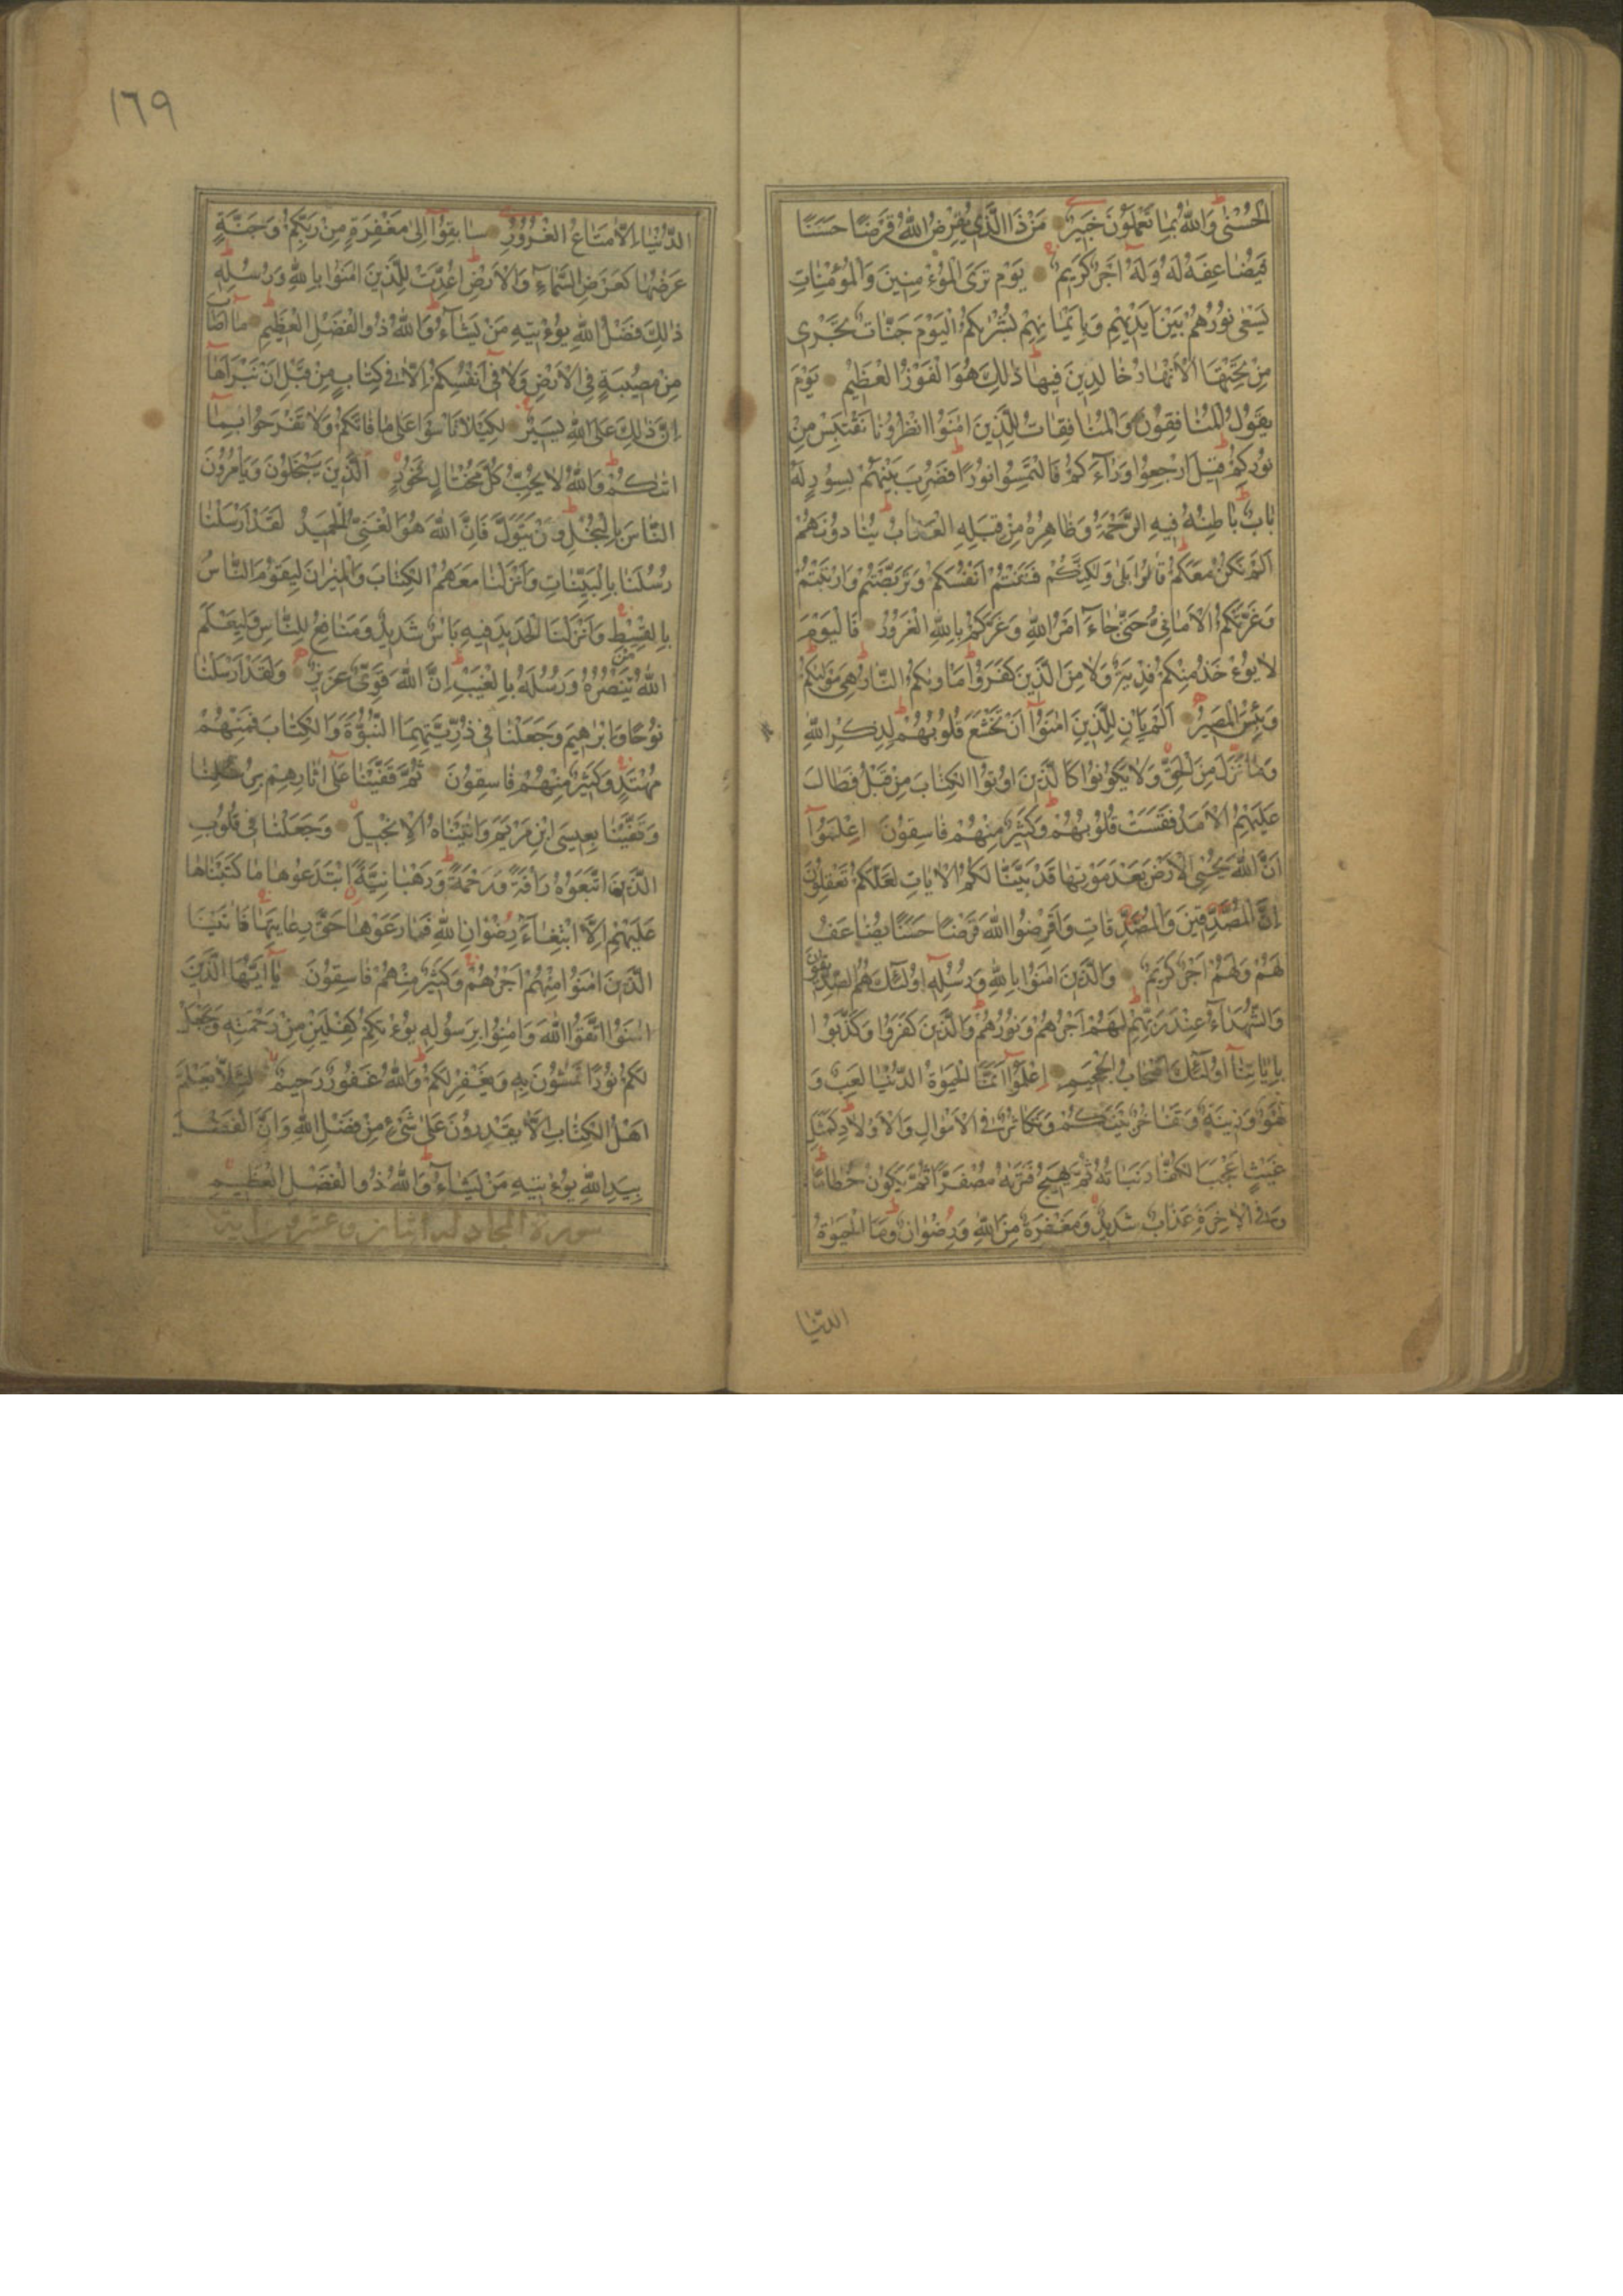 الْحُسْنٰى وَاللّٰهُ بِمَا تَعْمَلُونَ خَبِيرٌ مَنْ ذَا الَّذِى يُقْرِضُ اللّٰهَ قَرْضًا حَسَنًا
فَيُضَاعِفَهُ لَهُ وَلَهُ اَجْرٌ كَرِيمٌ يَوْمَ تَرَى الْمُؤْمِنِينَ وَالْمُؤْمِنَاتِ
يَسْعٰى نُورُهُمْ بَيْنَ اَيْدِيهِمْ وَبِاَيْمَانِهِمْ بُشْرٰيكُمُ الْيَوْمَ جَنَّاتٌ تَجْرِى
مِنْ تَحْتِهَا الْاَنْهَارُ خَالِدِينَ فِيهَا ذٰلِكَ هُوَ الْفَوْزُ الْعَظِيمُ يَوْمَ
يَقُولُ الْمُنَافِقُونَ وَالْمُنَافِقَاتُ لِلَّذِينَ اٰمَنُوا انْظُرُونَا نَقْتَبِسْ مِنْ
نُورِكُمْ قِيلَ ارْجِعُوا وَرَآءَكُمْ فَالْتَمِسُوا نُورًا فَضُرِبَ بَيْنَهُمْ بِسُورٍ لَهُ
بَابٌ بَاطِنُهُ فِيهِ الرَّحْمَةُ وَظَاهِرُهُ مِنْ قِبَلِهِ الْعَذَابُ يُنَادُونَهُمْ
اَلَمْ نَكُنْ مَعَكُمْ قَالُوا بَلٰى وَلٰكِنَّكُمْ فَتَنْتُمْ اَنْفُسَكُمْ وَتَرَبَّصْتُمْ وَارْتَبْتُمْ
وَغَرَّتْكُمُ الْاَمَانِىُّ حَتّٰى جَآءَ اَمْرُ اللّٰهِ وَغَرَّكُمْ بِاللّٰهِ الْغَرُورُ فَالْيَوْمَ
لَا يُؤْخَذُ مِنْكُمْ فِدْيَةٌ وَلَا مِنَ الَّذِينَ كَفَرُوا مَاْوٰيكُمُ النَّارُ هِىَ مَوْلٰيكُمْ
وَبِئْسَ الْمَصِيرُ اَلَمْ يَاْنِ لِلَّذِينَ اٰمَنُوٓا اَنْ تَخْشَعَ قُلُوبُهُمْ لِذِكْرِ اللّٰهِ
وَمَا نَزَلَ مِنَ الْحَقِّ وَلَا يَكُونُوا كَالَّذِينَ اُوتُوا الْكِتَابَ مِنْ قَبْلُ فَطَالَ
عَلَيْهِمُ الْاَمَدُ فَقَسَتْ قُلُوبُهُمْ وَكَثِيرٌ مِنْهُمْ فَاسِقُونَ اِعْلَمُوٓا
اَنَّ اللّٰهَ يُحْيِى الْاَرْضَ بَعْدَ مَوْتِهَا قَدْ بَيَّنَّا لَكُمُ الْاٰيَاتِ لَعَلَّكُمْ تَعْقِلُونَ
اِنَّ الْمُصَّدِّقِينَ وَالْمُصَّدِّقَاتِ وَاَقْرَضُوا اللّٰهَ قَرْضًا حَسَنًا يُضَاعَفُ
لَهُمْ وَلَهُمْ اَجْرٌ كَرِيمٌ وَالَّذِينَ اٰمَنُوا بِاللّٰهِ وَرُسُلِهِ اُولٰٓئِكَ هُمُ الصِّدِّيقُونَ
وَالشُّهَدَآءُ عِنْدَ رَبِّهِمْ لَهُمْ اَجْرُهُمْ وَنُورُهُمْ وَالَّذِينَ كَفَرُوا وَكَذَّبُوا
بِاٰيَاتِنَآ اُولٰٓئِكَ اَصْحَابُ الْجَحِيمِ اِعْلَمُوٓا اَنَّمَا الْحَيٰوةُ الدُّنْيَا لَعِبٌ وَ
لَهْوٌ وَزِينَةٌ وَتَفَاخُرٌ بَيْنَكُمْ وَتَكَاثُرٌ فِى الْاَمْوَالِ وَالْاَوْلَادِ كَمَثَلِ
غَيْثٍ اَعْجَبَ الْكُفَّارَ نَبَاتُهُ ثُمَّ يَهِيجُ فَتَرٰيهُ مُصْفَرًّا ثُمَّ يَكُونُ حُطَامًا
وَفِى الْاٰخِرَةِ عَذَابٌ شَدِيدٌ وَمَغْفِرَةٌ مِنَ اللّٰهِ وَرِضْوَانٌ وَمَا الْحَيٰوةُ
الدّنيا
١٦٩
الدُّنْيَآ اِلَّا مَتَاعُ الْغُرُورِ سَابِقُوٓا اِلٰى مَغْفِرَةٍ مِنْ رَبِّكُمْ وَجَنَّةٍ
عَرْضُهَا كَعَرْضِ السَّمَآءِ وَالْاَرْضِ اُعِدَّتْ لِلَّذِينَ اٰمَنُوا بِاللّٰهِ وَرُسُلِهِ
ذٰلِكَ فَضْلُ اللّٰهِ يُؤْتِيهِ مَنْ يَشَآءُ وَاللّٰهُ ذُو الْفَضْلِ الْعَظِيمِ مَآ اَصَابَ
مِنْ مُصِيبَةٍ فِى الْاَرْضِ وَلَا فِىٓ اَنْفُسِكُمْ اِلَّا فِى كِتَابٍ مِنْ قَبْلِ اَنْ نَبْرَاَهَا
اِنَّ ذٰلِكَ عَلَى اللّٰهِ يَسِيرٌ لِكَيْلَا تَاْسَوْا عَلٰى مَا فَاتَكُمْ وَلَا تَفْرَحُوا بِمَآ
اٰتٰيكُمْ وَاللّٰهُ لَا يُحِبُّ كُلَّ مُخْتَالٍ فَخُورٍ اَلَّذِينَ يَبْخَلُونَ وَيَاْمُرُونَ
النَّاسَ بِالْبُخْلِ وَمَنْ يَتَوَلَّ فَاِنَّ اللّٰهَ هُوَ الْغَنِىُّ الْحَمِيدُ لَقَدْ اَرْسَلْنَا
رُسُلَنَا بِالْبَيِّنَاتِ وَاَنْزَلْنَا مَعَهُمُ الْكِتَابَ وَالْمِيزَانَ لِيَقُومَ النَّاسُ
بِالْقِسْطِ وَاَنْزَلْنَا الْحَدِيدَ فِيهِ بَاْسٌ شَدِيدٌ وَمَنَافِعُ لِلنَّاسِ وَلِيَعْلَمَ
اللّٰهُ مَنْ يَنْصُرُهُ وَرُسُلَهُ بِالْغَيْبِ اِنَّ اللّٰهَ قَوِىٌّ عَزِيزٌ وَلَقَدْ اَرْسَلْنَا
نُوحًا وَاِبْرٰهِيمَ وَجَعَلْنَا فِى ذُرِّيَّتِهِمَا النُّبُوَّةَ وَالْكِتَابَ فَمِنْهُمْ
مُهْتَدٍ وَكَثِيرٌ مِنْهُمْ فَاسِقُونَ ثُمَّ قَفَّيْنَا عَلٰٓى اٰثَارِهِمْ بِرُسُلِنَا
وَقَفَّيْنَا بِعِيسَى ابْنِ مَرْيَمَ وَاٰتَيْنَاهُ الْاِنْجِيلَ وَجَعَلْنَا فِى قُلُوبِ
الَّذِينَ اتَّبَعُوهُ رَاْفَةً وَرَحْمَةً وَرَهْبَانِيَّةً ابْتَدَعُوهَا مَا كَتَبْنَاهَا
عَلَيْهِمْ اِلَّا ابْتِغَآءَ رِضْوَانِ اللّٰهِ فَمَا رَعَوْهَا حَقَّ رِعَايَتِهَا فَاٰتَيْنَا
الَّذِينَ اٰمَنُوا مِنْهُمْ اَجْرَهُمْ وَكَثِيرٌ مِنْهُمْ فَاسِقُونَ يَآ اَيُّهَا الَّذِينَ
اٰمَنُوا اتَّقُوا اللّٰهَ وَاٰمِنُوا بِرَسُولِهِ يُؤْتِكُمْ كِفْلَيْنِ مِنْ رَحْمَتِهِ وَيَجْعَلْ
لَكُمْ نُورًا تَمْشُونَ بِهِ وَيَغْفِرْ لَكُمْ وَاللّٰهُ غَفُورٌ رَحِيمٌ لِئَلَّا يَعْلَمَ
اَهْلُ الْكِتَابِ اَلَّا يَقْدِرُونَ عَلٰى شَىْءٍ مِنْ فَضْلِ اللّٰهِ وَاَنَّ الْفَضْلَ
بِيَدِ اللّٰهِ يُؤْتِيهِ مَنْ يَشَآءُ وَاللّٰهُ ذُو الْفَضْلِ الْعَظِيمِ
سورة المجادلة اثنان وعشرون اية